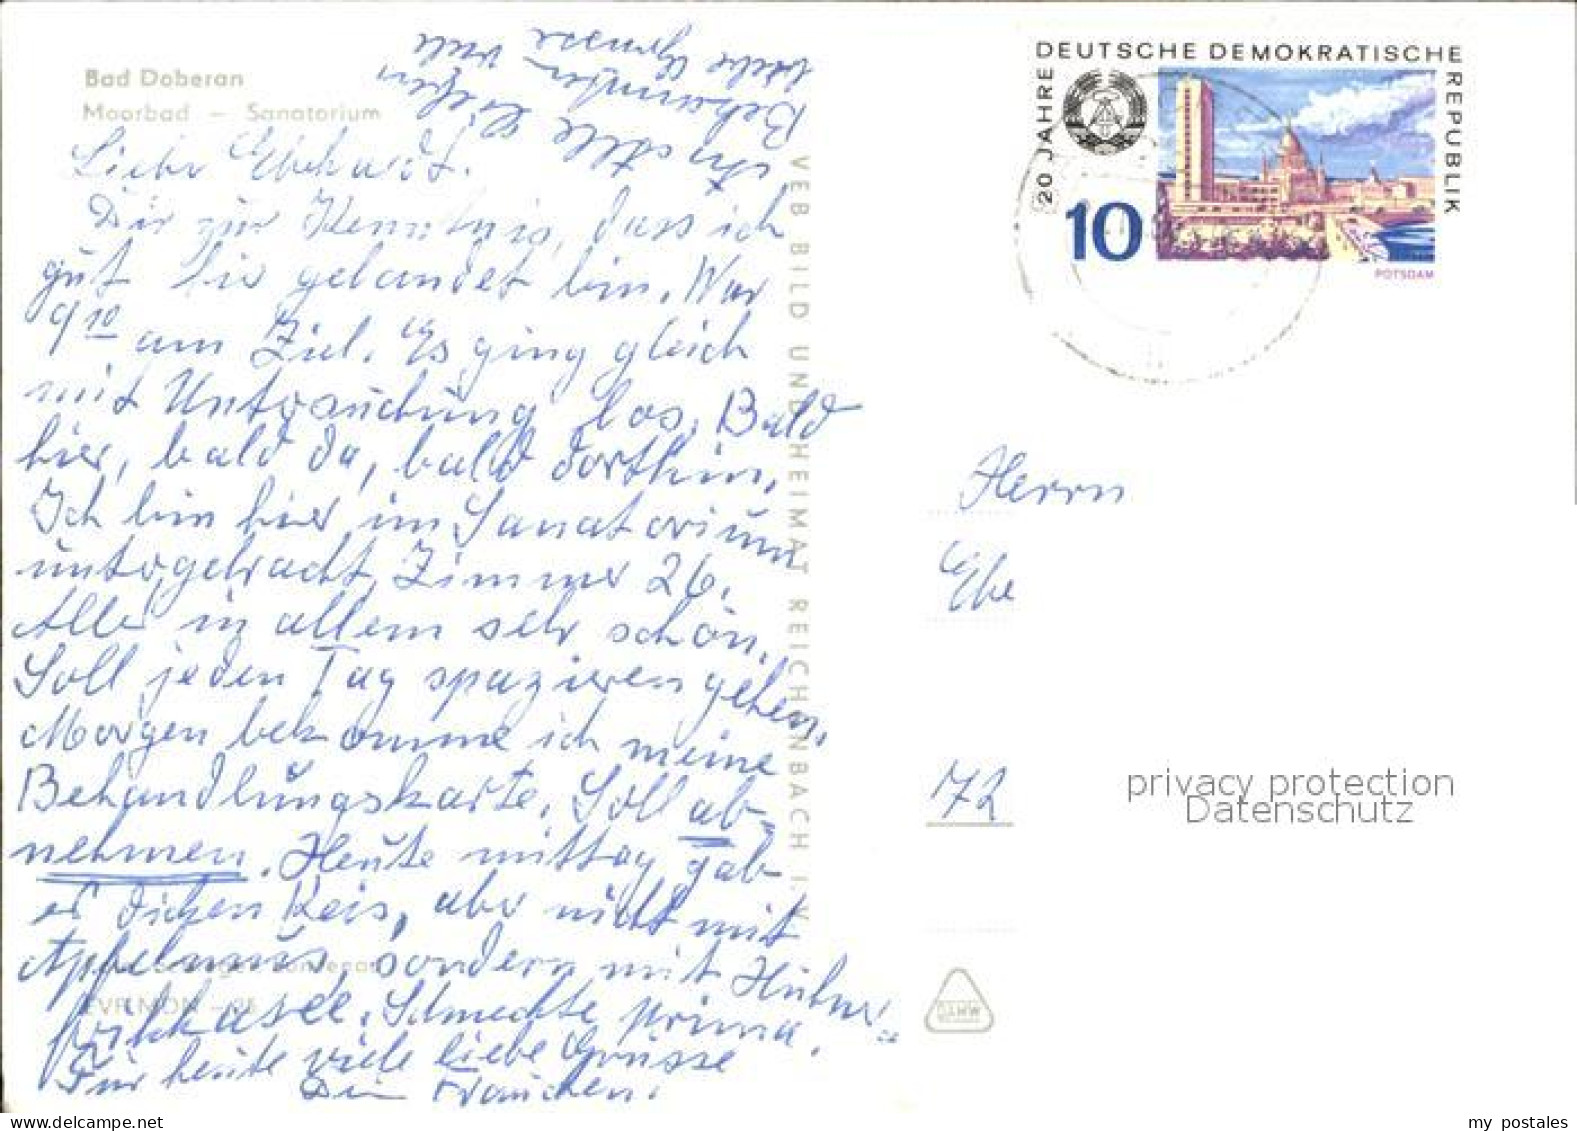 Bad Doberan
Moorbad – Sanatorium
Liebr Eberhardt.
Dir zur Kenntnis, dass ich
gut hir gelandet bin. War
9 10 am Ziel. Es ging gleich
mit Untersuchung los. Bald
hier, bald da, bald dorthin,
Ich bin hier im Sanatorium
untergebracht Zimmer 26.
Alles in allem sehr schön.
Soll jeden Tag spazieren gehen,
Morgen bekomme ich meine
Behandlungskarte. Soll ab-
nehmen. Heute mittag gab
es dicken Reis, aber nicht mit
Apfelmus, sondern mit Hühner-
frikkasee. Schmeckte prima.
Für heute viele liebe Grüsse
Dein Frauchen.
ich alle
Bekannten
VEB BILD UND HEIMAT REICHENBACH I. V.
20 JAHRE DEUTSCHE DEMOKRATISCHE REPUBLIK
10
POTSDAM
Herrn
Ebe
172
privacy protection
Datenschutz
www.delcampe.net
my postales